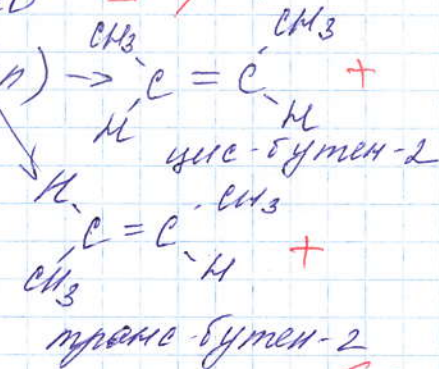 CH3 CH3
п) → C = C +
H H
цис-бутен-2
H CH3
C = C
CH3 H +
транс-бутен-2